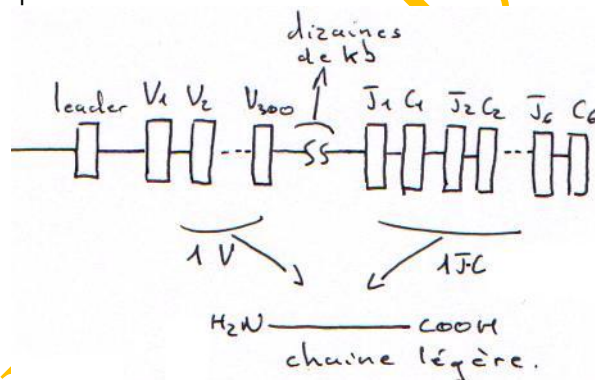 dizaines
de kb
leader V1 V2 V300 J1 C1 J2 C2 J6 C6
1 V 1 J-C
H2N COOH
chaine légère.